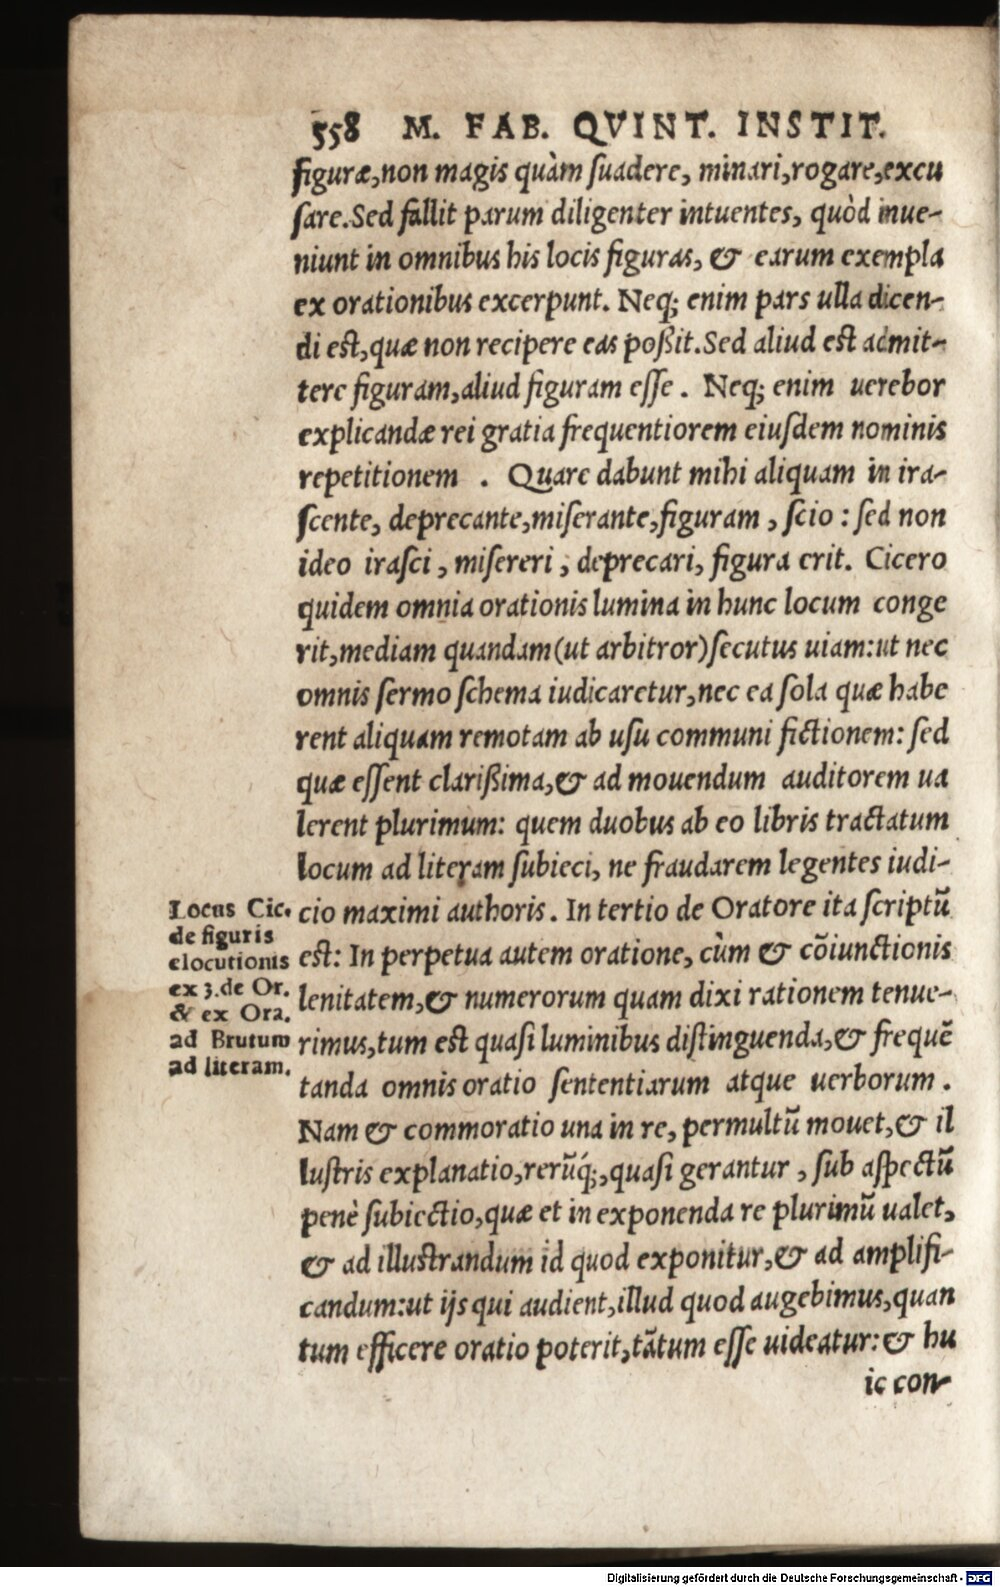 558 M. FAB. QVINT. INSTIT.
figuræ,non magis quàm ſuadere, minari,rogare,excu
ſare.Sed fallit parum diligenter intuentes, quòd inue-
niunt in omnibus his locis figuras, & earum exempla
ex orationibus excerpunt. Neq; enim pars ulla dicen-
di est,quæ non recipere eas poßit.Sed aliud est admit-
tere figuram,aliud figuram eſſe . Neq; enim uerebor
explicandæ rei gratia frequentiorem eiuſdem nominis
repetitionem . Quare dabunt mihi aliquam in ira-
ſcente, deprecante,miſerante,figuram , ſcio : ſed non
ideo iraſci , miſereri , deprecari, figura erit. Cicero
quidem omnia orationis lumina in hunc locum conge
rit,mediam quandam(ut arbitror)ſecutus uiam:ut nec
omnis ſermo ſchema iudicaretur,nec ea ſola quæ habe
rent aliquam remotam ab uſu communi fictionem: ſed
quæ eſſent clarißima,& ad mouendum auditorem ua
lerent plurimum: quem duobus ab eo libris tractatum
locum ad literam ſubieci, ne fraudarem legentes iudi-
cio maximi authoris . In tertio de Oratore ita ſcriptũ
est: In perpetua autem oratione, cùm & cõiunctionis
lenitatem,& numerorum quam dixi rationem tenue-
rimus,tum est quaſi luminibus diſtinguenda,& frequẽ
tanda omnis oratio ſententiarum atque uerborum .
Nam & commoratio una in re, permultũ mouet,& il
luſtris explanatio,rerũq́;,quaſi gerantur , ſub aſpectũ
penè ſubiectio,quæ et in exponenda re plurimũ ualet,
& ad illustrandum id quod exponitur,& ad amplifi-
candum:ut ijs qui audient,illud quod augebimus,quan
tum efficere oratio poterit,tãtum eſſe uideatur:& hu
ic con-
Locus Cic.
de figuris
elocutionis
ex 3.de Or.
& ex Ora.
ad Brutum
ad literam.
Digitalisierung gefördert durch die Deutsche Forschungsgemeinschaft - DFG